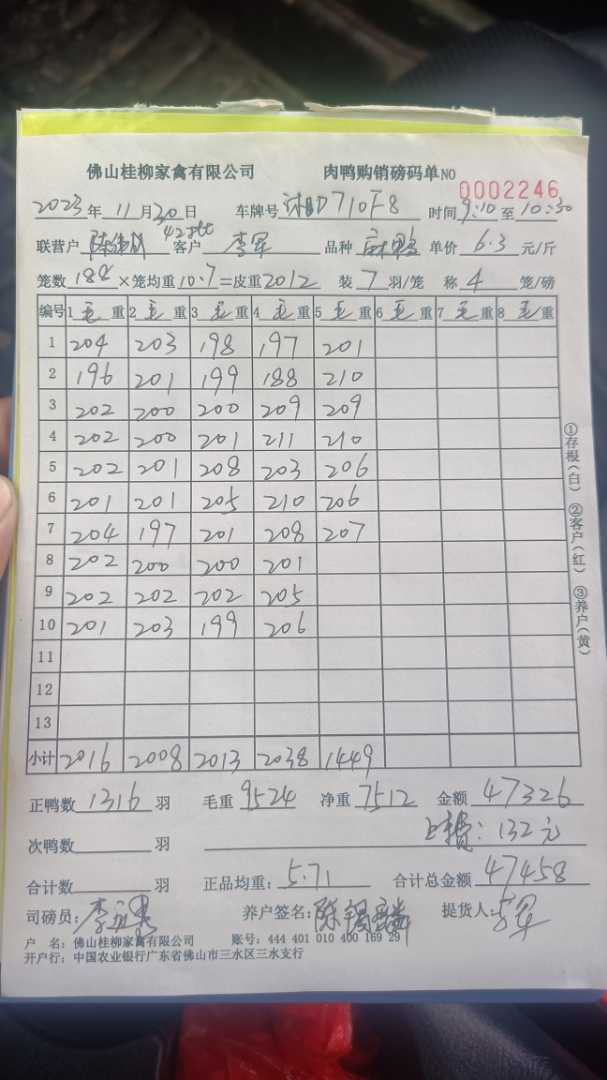 佛山桂柳家禽有限公司 肉鸭购销磅码单 NO 0002246
2023年 11月30日 车牌号 D710F8 时间 9:10 至 10:30
联营户 客户 李军 品种 麻鸭 单价 6.3 元/斤
笼数 188 ×笼均重 10.7 =皮重 2012 装 7 羽/笼 称 4 笼/磅
编号 1 毛重 2 毛重 3 毛重 4 毛重 5 毛重 6 毛重 7 毛重 8 毛重
1 204 203 198 197 201
2 196 201 199 188 210
3 202 200 200 209 209
4 202 200 201 211 210
5 202 201 208 203 206
6 201 201 205 210 206
7 204 197 201 208 207
8 202 200 200 201
9 202 202 202 205
10 201 203 199 206
11
12
13
小计 2016 2008 2013 2038 1449
正鸭数 1316 羽 毛重 9524 净重 7512 金额 47326
次鸭数 羽 上费:132元
合计数 羽 正品均重: 5.71 合计总金额 47458
司磅员: 养户签名: 提货人: 李军
户 名: 佛山桂柳家禽有限公司 账号: 444 401 010 400 169 29
开户行: 中国农业银行广东省佛山市三水区三水支行
①存根(白) ②客户(红) ③养户(黄)